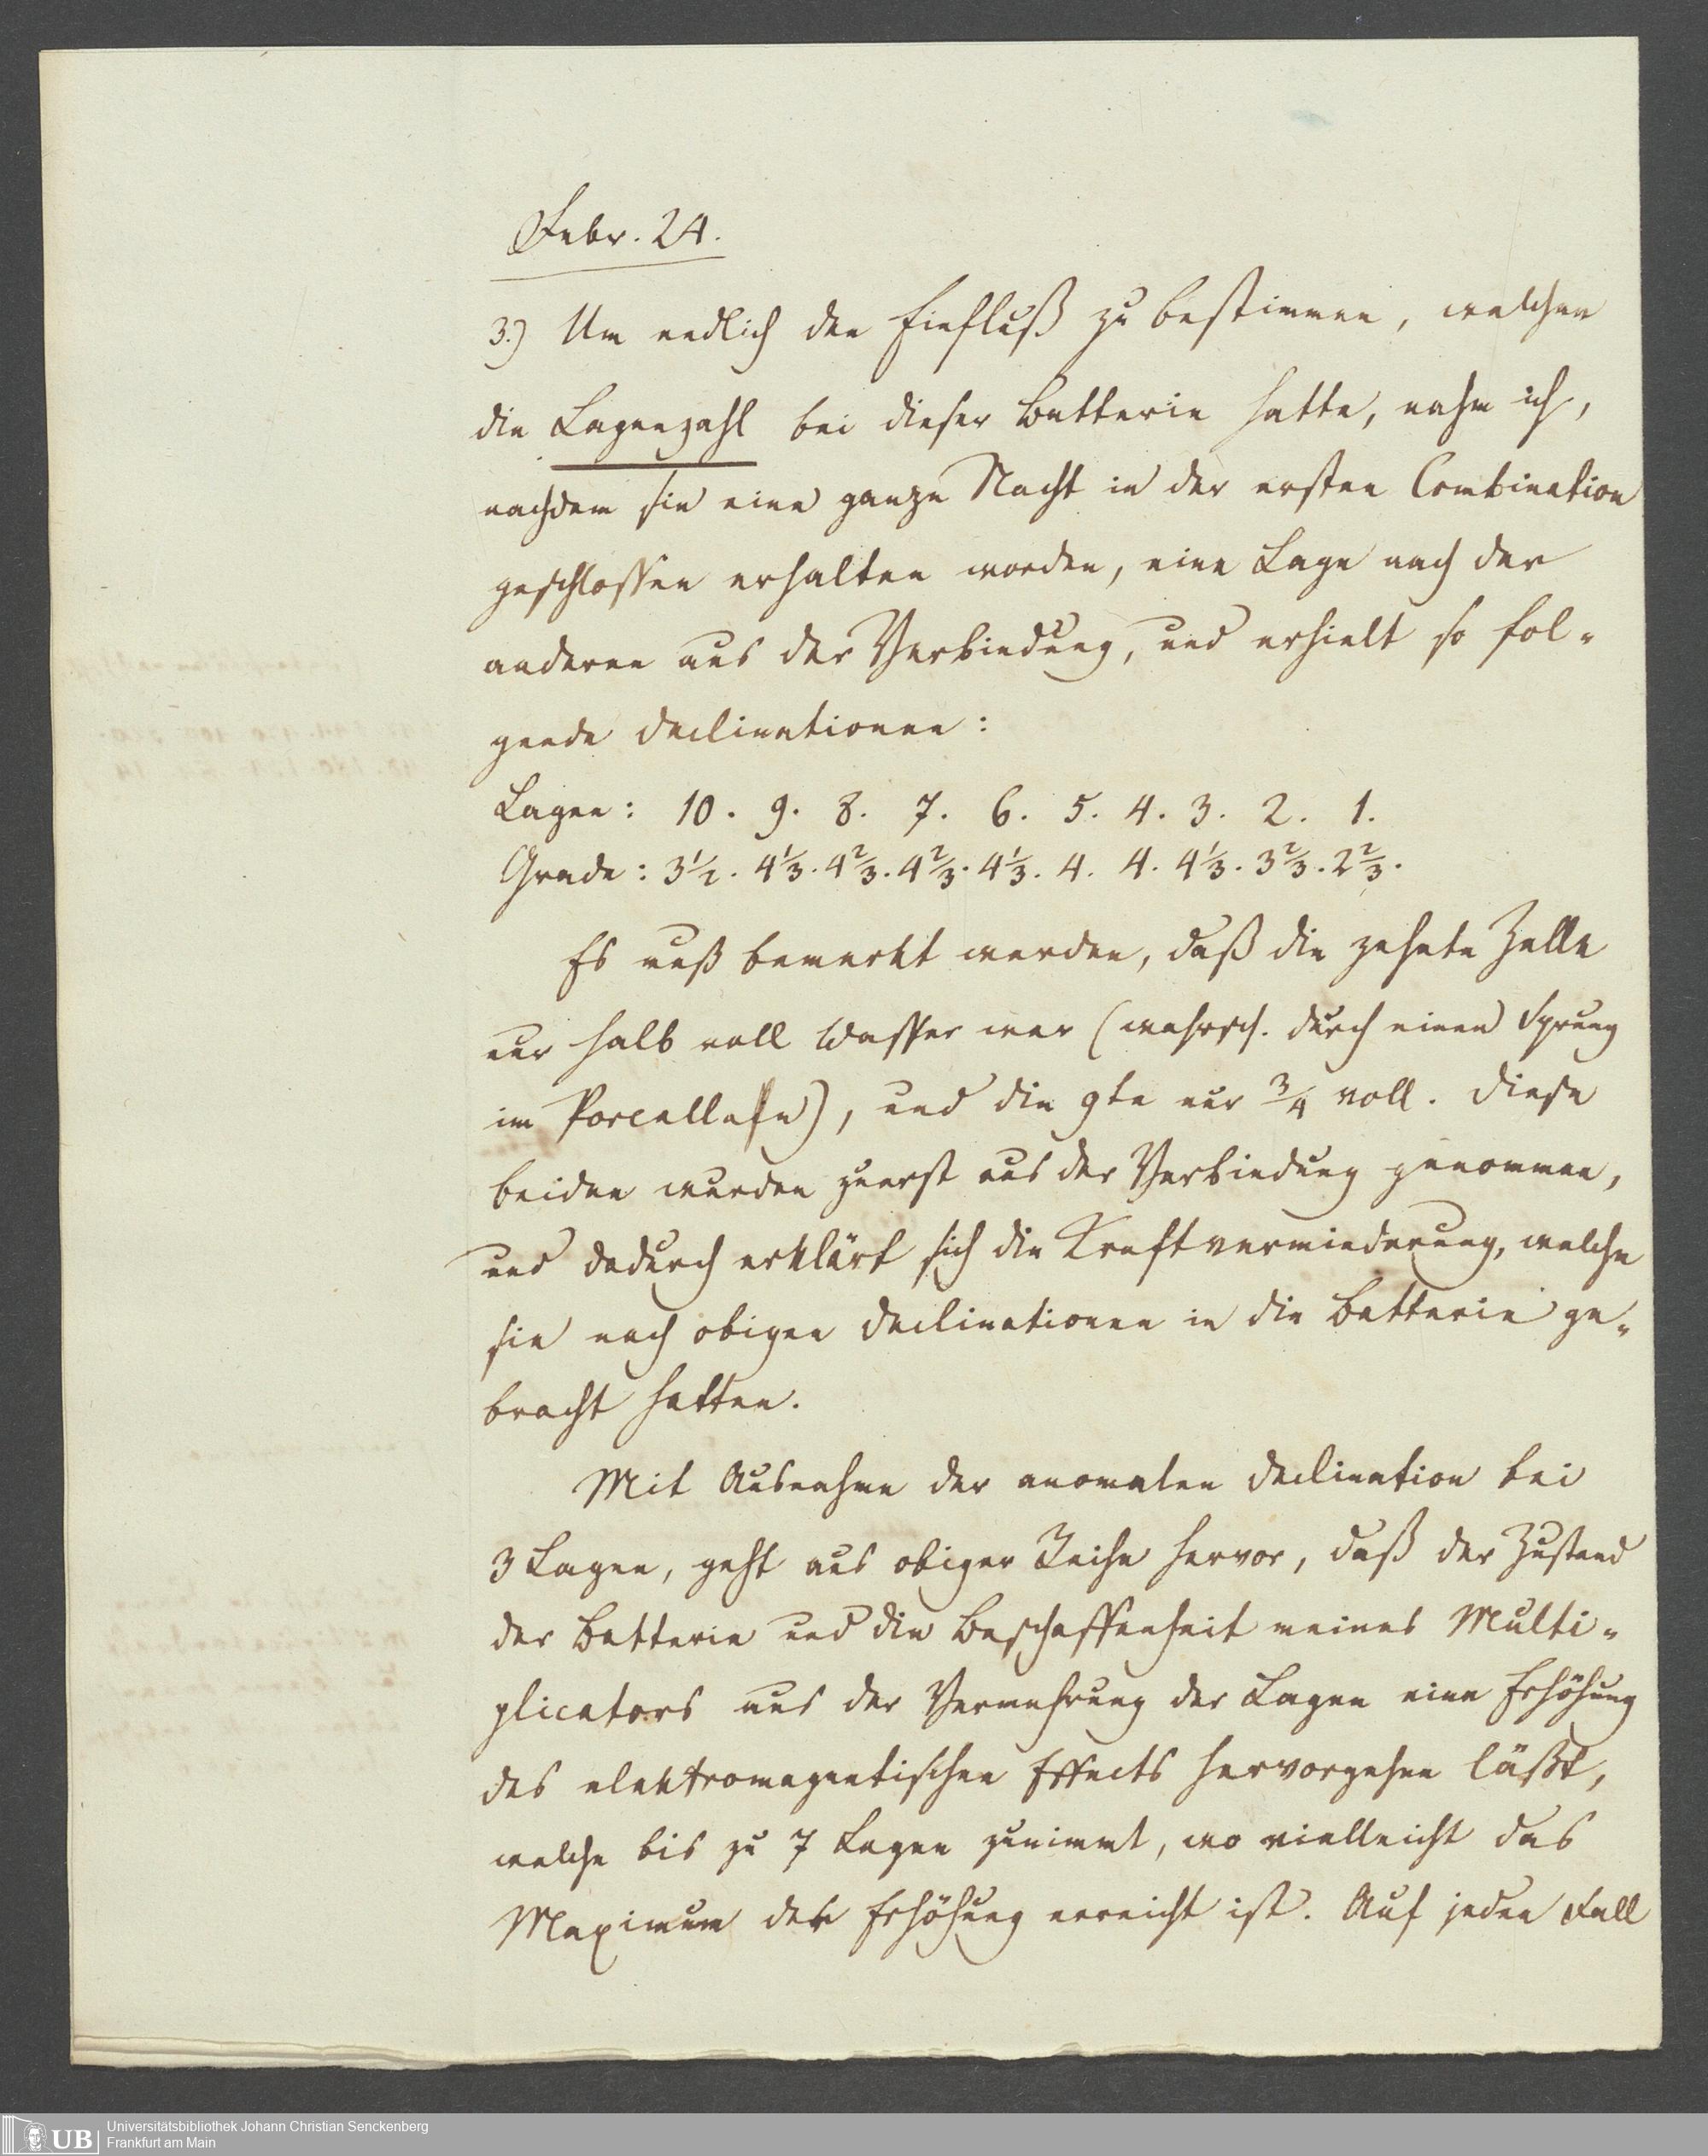 Febr. 24.
3.) Um endlich den Einfluß zu bestimmen, welchen
die Lagenzahl bei dieser Batterie hatte, nahm ich,
nachdem sie eine ganze Nacht in der ersten Combination
geschlossen erhalten worden, eine Lage nach der
anderen aus der Verbindung, und erhielt so fol-
gende Declinationen:
Lagen: 10. 9. 8. 7. 6. 5. 4. 3. 2. 1.
Grade: 3½. 4⅓. 4⅔. 4⅔. 4⅓. 4. 4. 4⅓. 3⅔. 2⅔.
Es muß bemerkt werden, daß die zehnte Zelle
nur halb voll Wasser war (wahrsch. durch einen Sprung
im Porcellain), und die 9te nur ¾ voll. Diese
beiden wurden zuerst aus der Verbindung genommen,
und dadurch erklärt sich die Kraftverminderung, welche
sie nach obigen Declinationen in die Batterie ge-
bracht hatten.
Mit Ausnahme der anomalen Declination bei
3 Lagen, geht aus obiger Reihe hervor, daß der Zustand
der Batterie und die Beschaffenheit meines Multi-
plicators aus der Vermehrung der Lagen eine Erhöhung
des elektromagnetischen Effects hervorgehen läßt,
welche bis zu 7 Lagen zunimmt, wo vielleicht das
Maximum der Erhöhung erreicht ist. Auf jeden Fall
UB Universitätsbibliothek Johann Christian Senckenberg
Frankfurt am Main